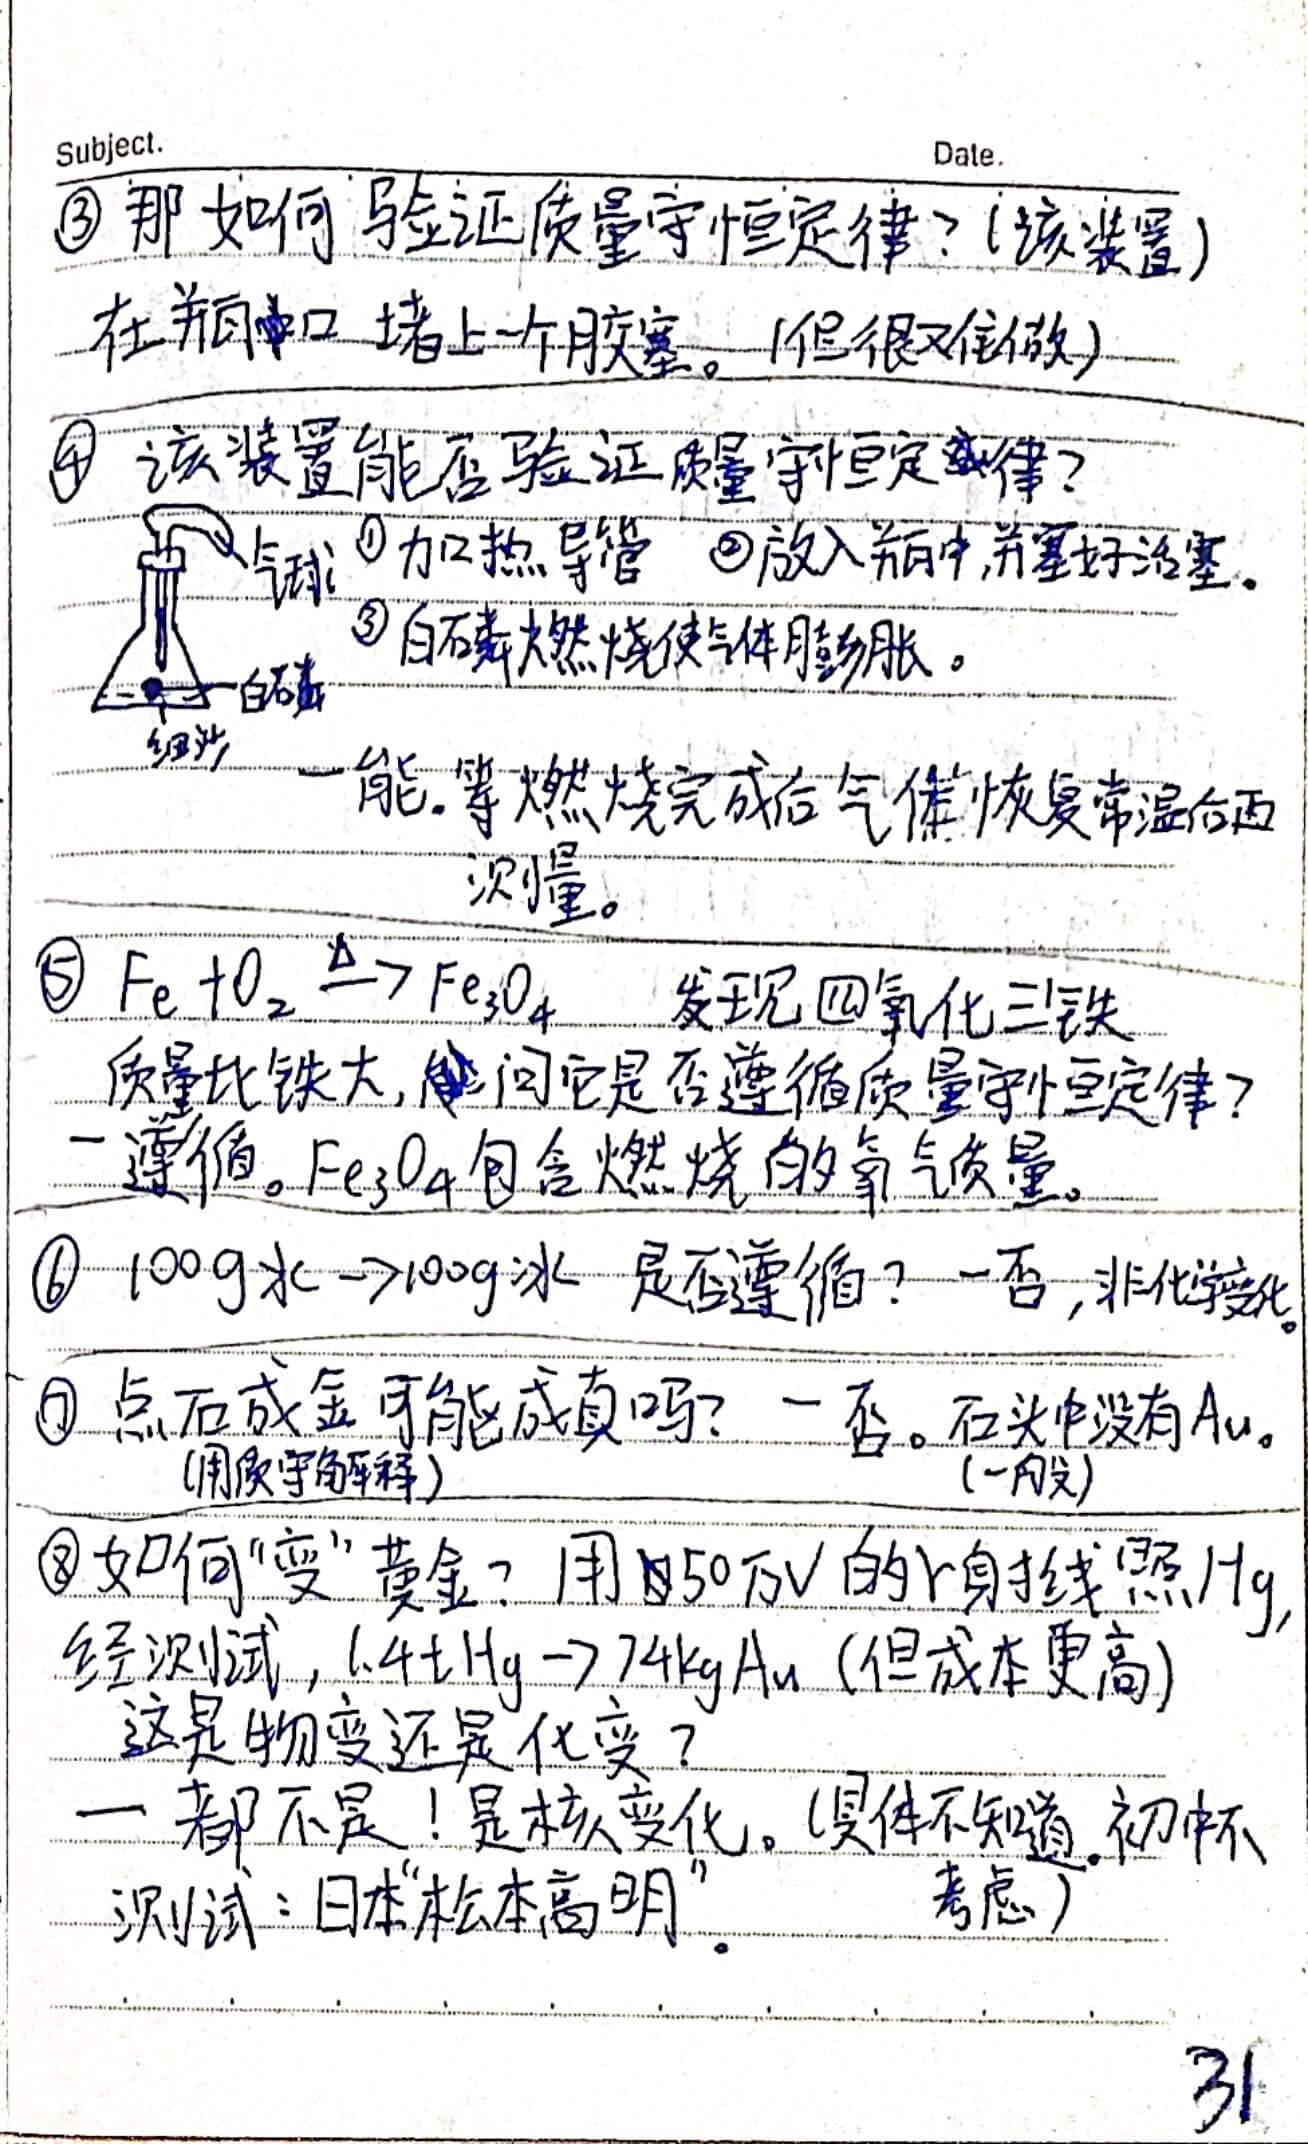 Subject.
Date.
③ 那如何验证质量守恒定律？（该装置）
在瓶口堵上一个胶塞。（但很难做）
④ 该装置能否验证质量守恒定律？
气球
①加热导管 ②放入瓶中，并塞好活塞。
③白磷燃烧使气体膨胀。
白磷
细沙
一能。等燃烧完成后气体恢复常温后再
测量。
⑤ Fe+O₂ →△ Fe₃O₄ 发现四氧化三铁
质量比铁大，问它是否遵循质量守恒定律？
一遵循。Fe₃O₄包含燃烧的氧气质量。
⑥ 100g水→100g冰 是否遵循？ 一否，非化学变化。
⑦ 点石成金可能成真吗？ 一否。石头中没有Au。
（用质守解释） （一般）
⑧如何“变”黄金？用50万V的γ射线照Hg，
经测试，1.4t Hg→74kg Au（但成本更高）
这是物变还是化变？
一都不是！是核变化。（具体不知道。初中不
考虑）
测试：日本“松本高明”。
31